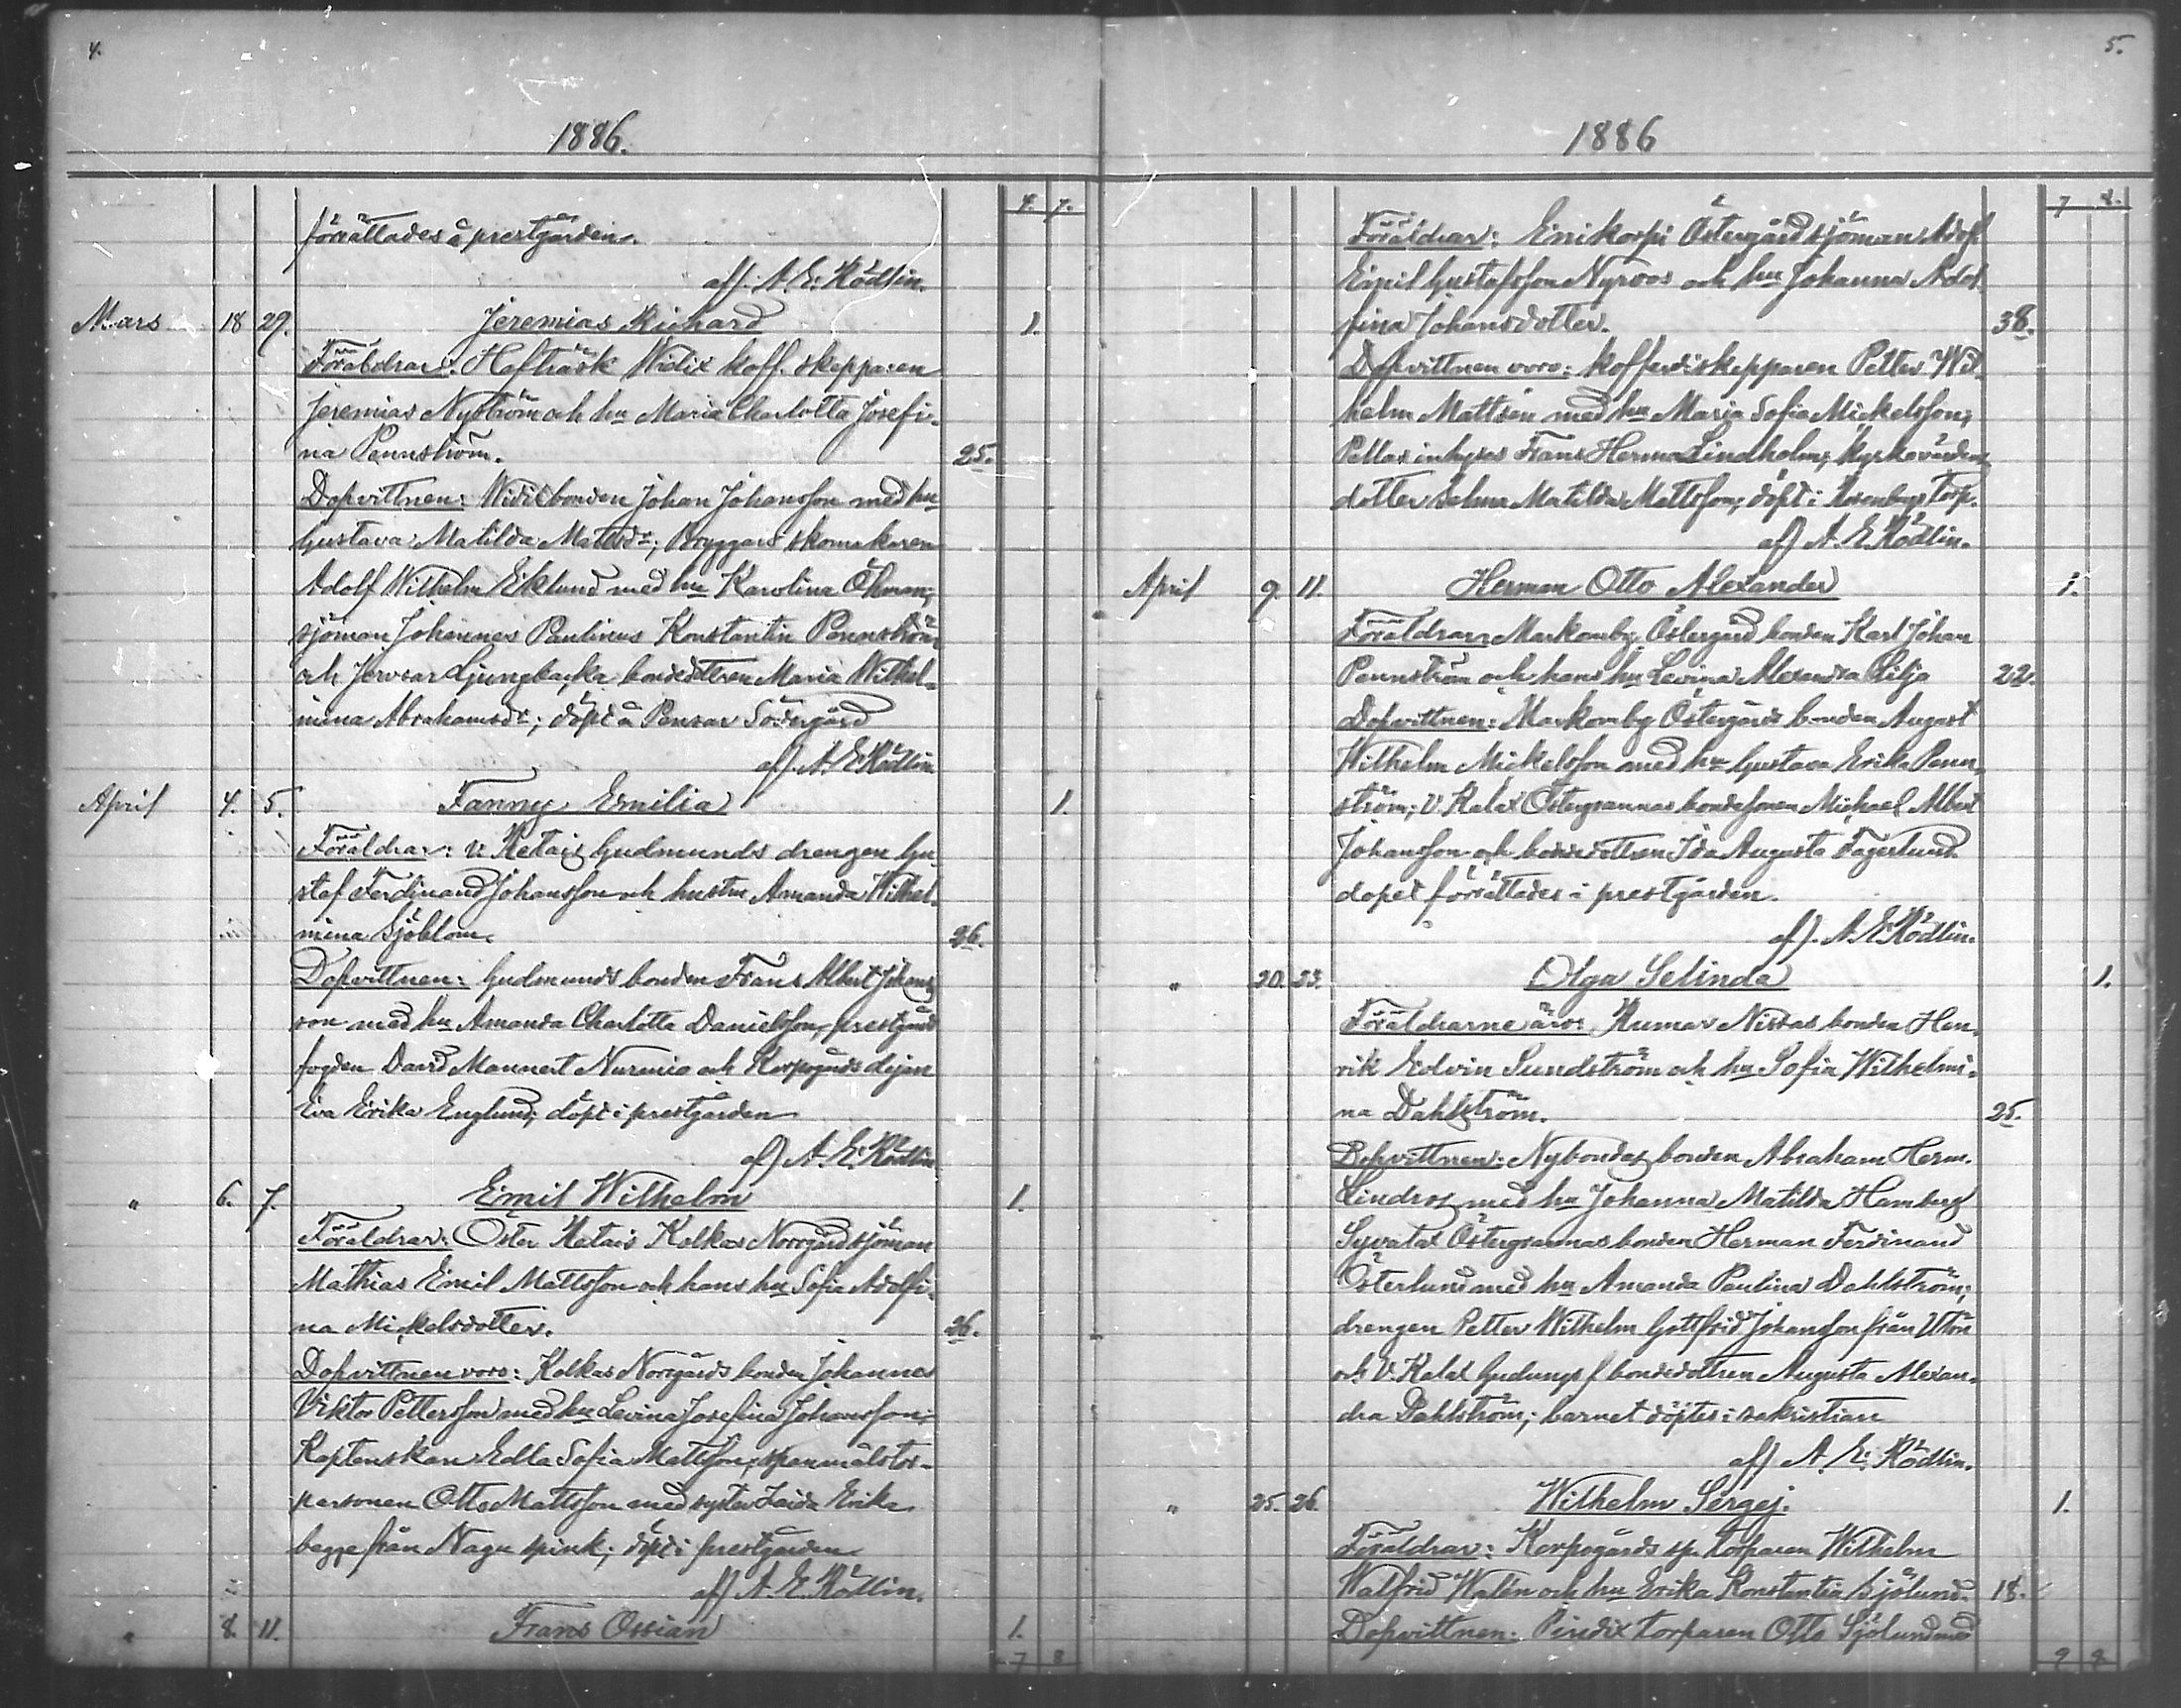 4.
1886.
4. 7.
förrättades å prestgården.
aff. A. E. Rödlin.
Mars 18 29. Jeremias Richard 1.
Föräldrar: Hafträsk Widix koff. skepparen
Jeremias Nyström och hu Maria Charlotta Josefi-
na Pennström. 25.
Dopvittnen: Widix bonden Johan Johansson med hu
Gustava Matilda Matsdr; Bryggars skomakaren
Adolf Wilhelm Eklund med hu Karolina Öhman;
sjöman Johannes Paulinus Konstantin Pennström
och Jervsar Ljungbacka bondedottren Maria Wilhel-
mina Abrahamsdr; döpt å Pensar Södergård
aff. A. E. Rödlin
April 4. 5. Fanny Emilia 1.
Föräldrar: v. Retais Gudmunds drengen Gu
staf Ferdinand Johansson och hustru Amanda Wilhel-
mina Sjöblom. 26.
Dopvittnen: Gudmunds bonden Frans Albert Johans
son med hu Amanda Charlotta Danielsson, prestgårds
fogden David Mannert Nurmio och Korpogårds dejan
Eva Erika Englund; döpt i prestgården
aff A. E. Rödlin
" 6. 7. Emil Wilhelm 1.
Föräldrar: Öster Retais Kalkas Norrgård sjöman
Mathias Emil Mattsson och hans hu Sofia Adolfi-
na Mickelsdotter. 26.
Dopvittnen voro: Kalkas Norrgårds bonden Johannes
Viktor Pettersson med hu Levina Josefina Johansson;
Kaptenskan Edla Sofia Mattsson, spanmålstor-
personen Otto Mattsson med syster Ida Erika
begge från Nagu spink; döpt i prestgården
aff A. E. Rödlin.
" 8. 11. Frans Ossian 1.
7 8
5.
1886
7 8.
Föräldrar: Ernikorpi Östergård sjöman Adolf
Emil Gustafsson Nyroos och hu Johanna Adol
fina Johansdotter. 38.
Dopvittnen voro: kofferdiskepparen Petter Wil-
helm Mattsén med hu Maria Sofia Mickelsson;
Pettas inhyses Frans Herman Lindholm; kyrkovärdens
dotter Selma Matilda Mattsson; döpt i Rosenbergs torp.
aff A. E. Rödlin.
April 9. 11. Herman Otto Alexander 1.
Föräldrar: Markomby Östergård bonden Karl Johan
Pennström och hans hu Levina Alexandra Lilja 22.
Dopvittnen: Markomby Östergårds bonden August
Wilhelm Mickelsson med hu Gustava Erika Penn-
ström; V. Kalax Östergrannas bondesonen Michael Albert
Johansson och bondedottren Ida Augusta Fagerlund
dopet förrättades i prestgården.
aff. A. E. Rödlin.
" 20. 23. Olga Selinda 1.
Föräldrarne äro: Rumar Nissas bonden Hen-
rik Edvin Sundström och hu Sofia Wilhelmi-
na Dahlström. 25.
Dopvittnen: Nybondas bonden Abraham Herm.
Lindros med hu Johanna Matilda Hamberg
Syvatax Östergrannas bonden Herman Ferdinand
Österlund med hu Amanda Paulina Dahlström;
drengen Petter Wilhelm Gottfrid Johansson från Utön
och V. Kalax Gudungs f bondedottren Augusta Alexan-
dra Dahlström; barnet döptes i sakristian
aff A. E. Rödlin.
" 25. 26. Wilhelm Sergej. 1.
Föräldrar: Korpogårds sp. torparen Wilhelm
Walfrid Walén och hu Erika Konstantia Sjölund. 18.
Dopvittnen: Pirsdix torparen Otto Sjölund med
9 9.